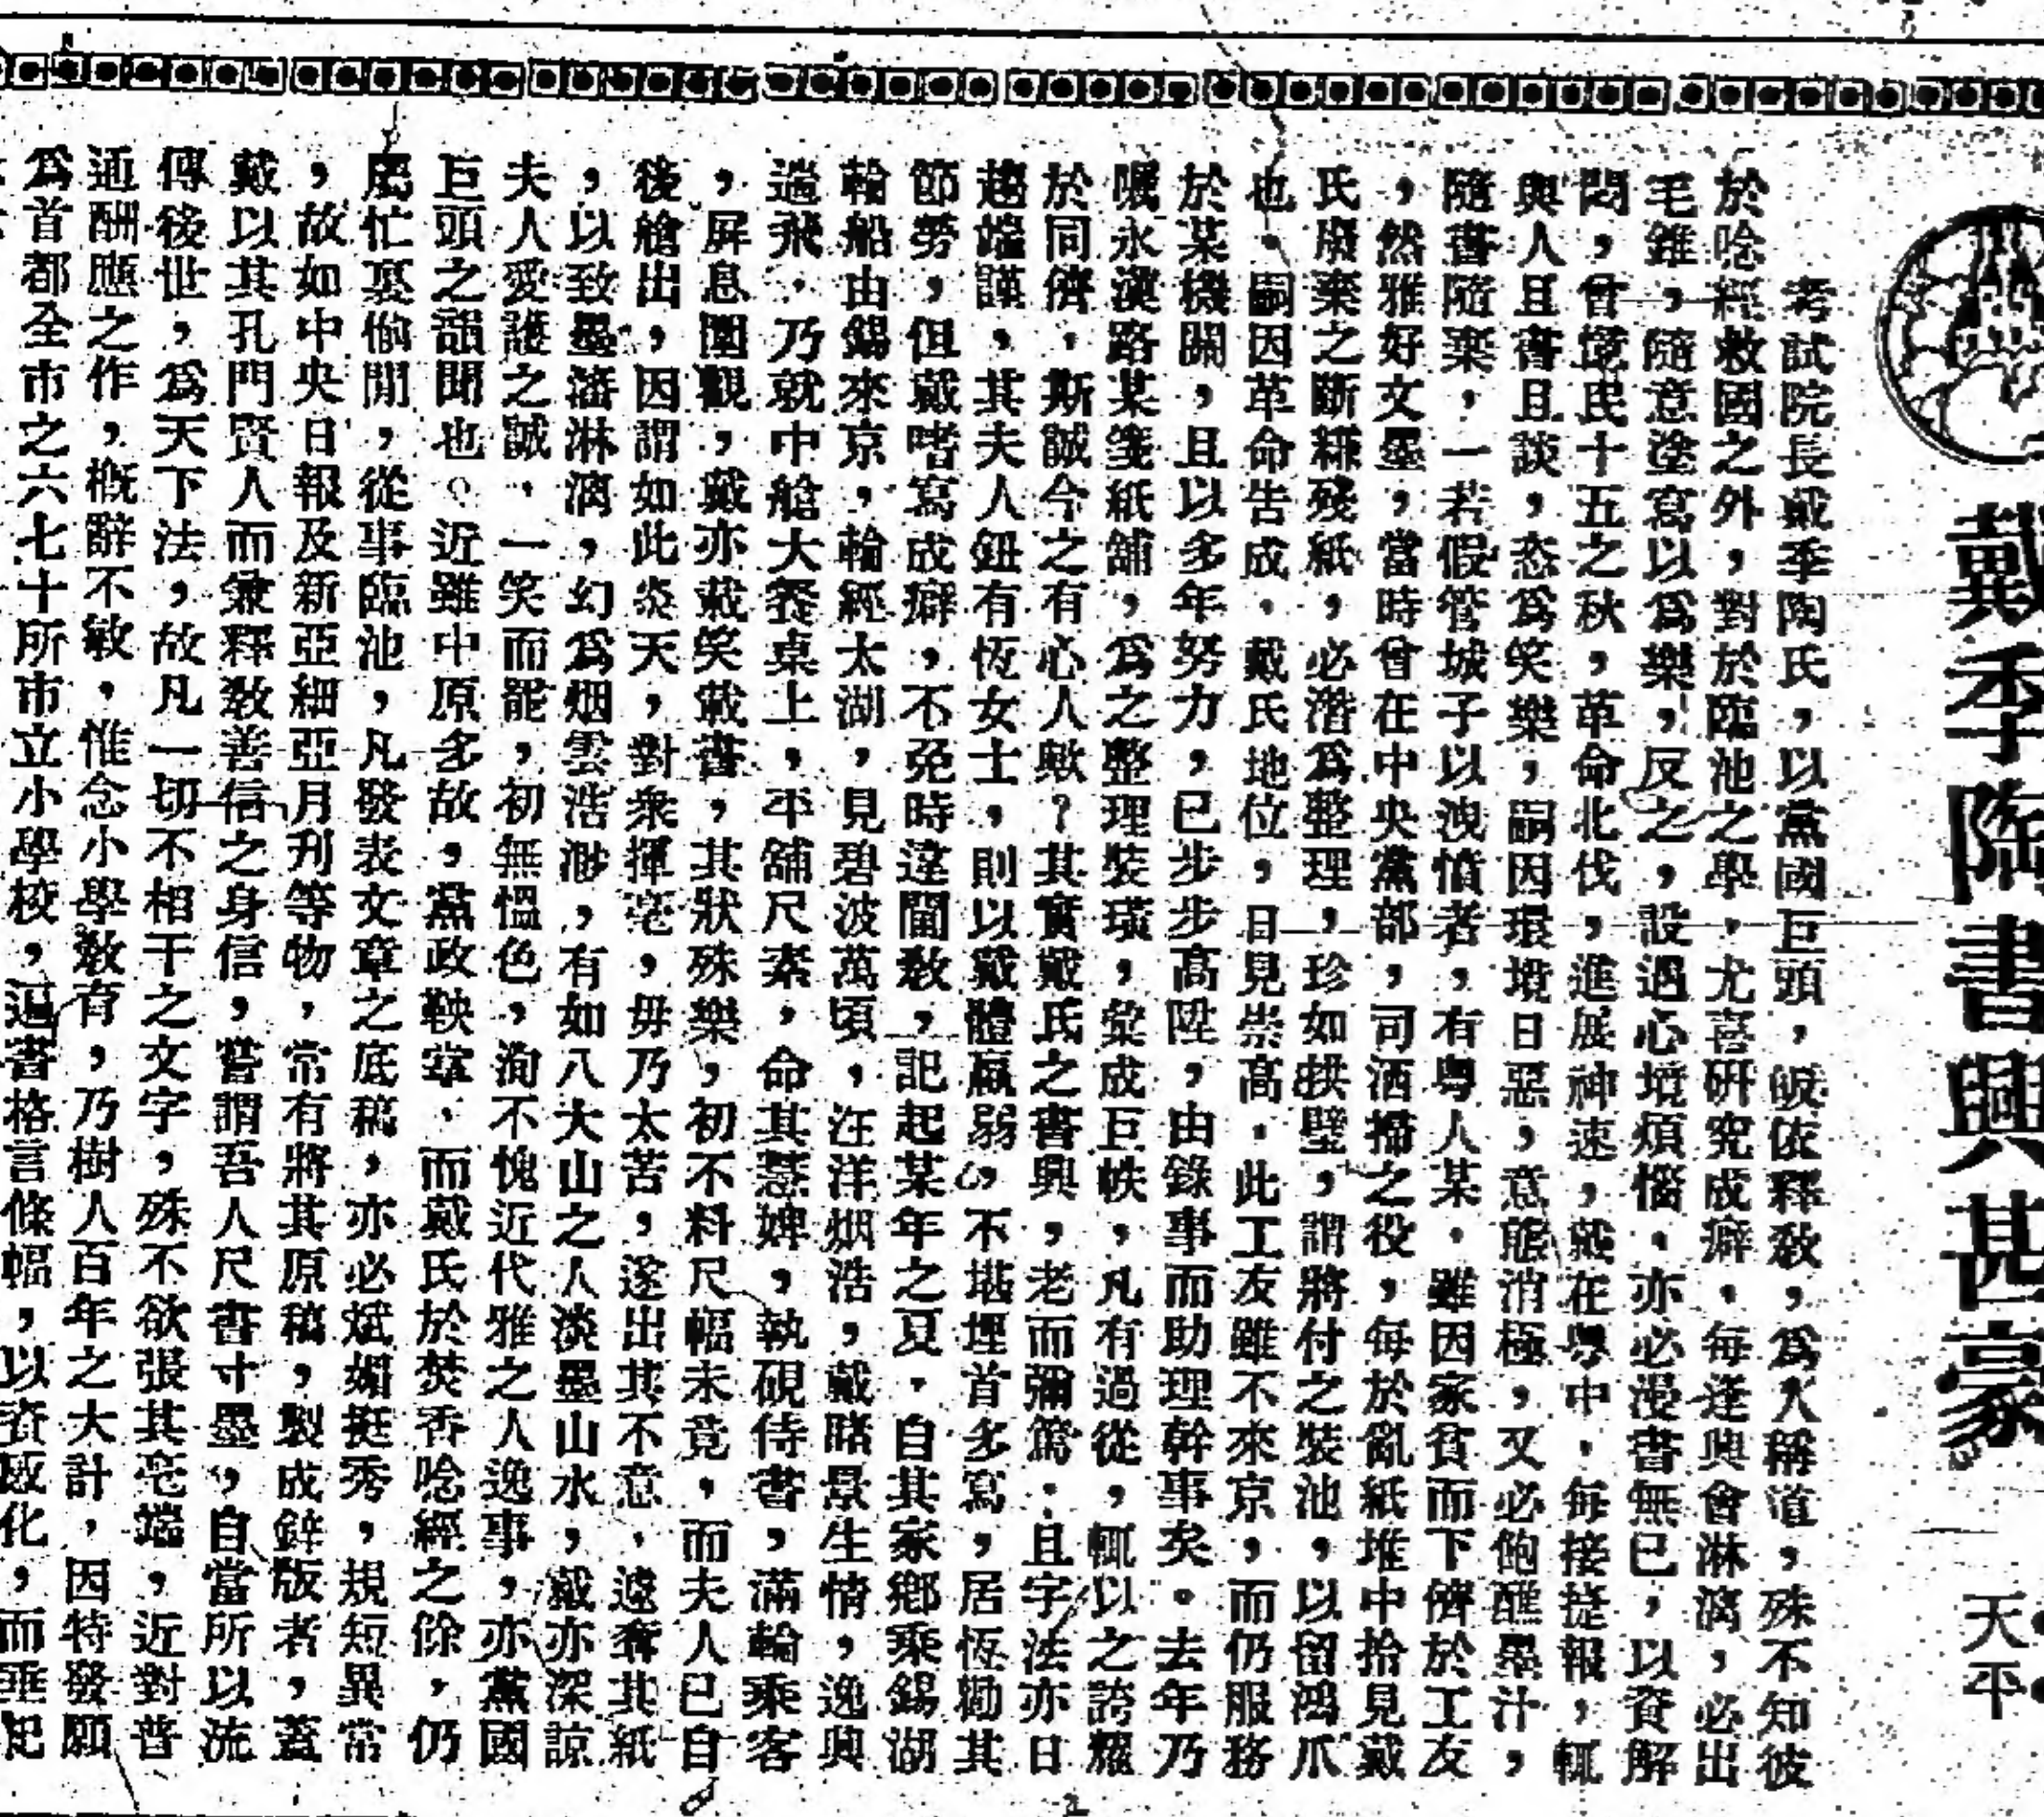 戴季陶書興甚豪
天平
考試院長戴季陶氏，以黨國巨頭，皈依釋教，爲人稱道，殊不知彼
於唸經救國之外，對於臨池之學，尤喜研究成癖．每逢興會淋漓，必出
毛錐，隨意塗寫以爲樂，反之，設遇心境煩惱．亦必漫書無已，以資解
悶，曾憶民十五之秋，革命北伐，進展神速，戴在粤中．每接捷報，輒
與人且書且談，恣爲笑樂，嗣因環境日惡，意態消極，又必飽醮墨汁，
隨書隨棄，一若假管城子以洩憤者，有粤人某．雖因家貧而下儕於工友
，然雅好文墨，當時曾在中央黨部，司洒掃之役，每於亂紙堆中拾見戴
氏廢棄之斷縑殘紙，必潛爲整理，珍如拱璧，謂將付之裝池，以留鴻爪
也．嗣因革命告成．戴氏地位，日見崇高．此工友雖不來京，而仍服務
於某機關，且以多年努力，已步步高陞，由錄事而助理幹事矣。去年乃
囑永漢路某箋紙舖，爲之整理裝璜，彙成巨帙，凡有過從，輒以之誇耀
於同儕．斯誠今之有心人歟？其實戴氏之書興，老而彌篤．且字法亦日
趨端謹，其夫人鈕有恆女士，則以戴體羸弱，不堪埋首多寫，居恆勸其
節勞，但戴嗜寫成癖，不免時違閫教，記起某年之夏．自其家鄉乘錫湖
輪船由錫來京，輪經太湖，見碧波萬頃，汪洋烟浩，戴睹景生情，逸興
遄飛．乃就中艙大餐桌上，平舖尺素，命其慧婢，執硯侍書，滿輪乘客
，屏息圍觀，戴亦戴笑戴書，其狀殊樂，初不料尺幅未竟，而夫人已自
後艙出，因謂如此炎天，對衆揮毫，毋乃太苦，遂出其不意．遽奪其紙
，以致墨瀋淋漓，幻爲烟雲浩渺，有如八大山之人淡墨山水，戴亦深諒
夫人愛護之誠．一笑而罷，初無慍色，洵不愧近代雅之人逸事，亦黨國
巨頭之韻聞也。近雖中原多故，黨政鞅掌．而戴氏於焚香唸經之餘，仍
屬忙裏偷閒，從事臨池，凡發表文章之底稿，亦必斌媚挺秀，規短異常
，故如中央日報及新亞細亞月刋等物，常有將其原稿，製成鋅版者，蓋
戴以其孔門賢人而兼釋教善信之身信，嘗謂吾人尺書寸墨，自當所以流
傳後世，爲天下法，故凡一切不相干之文字，殊不欲張其毫端，近對普
通酬應之作，槪辭不敏，惟念小學教育，乃樹人百年之大計，因特發願
爲首都全市之六七十所市立小學校，遍書格言條幅，以資感化，而垂